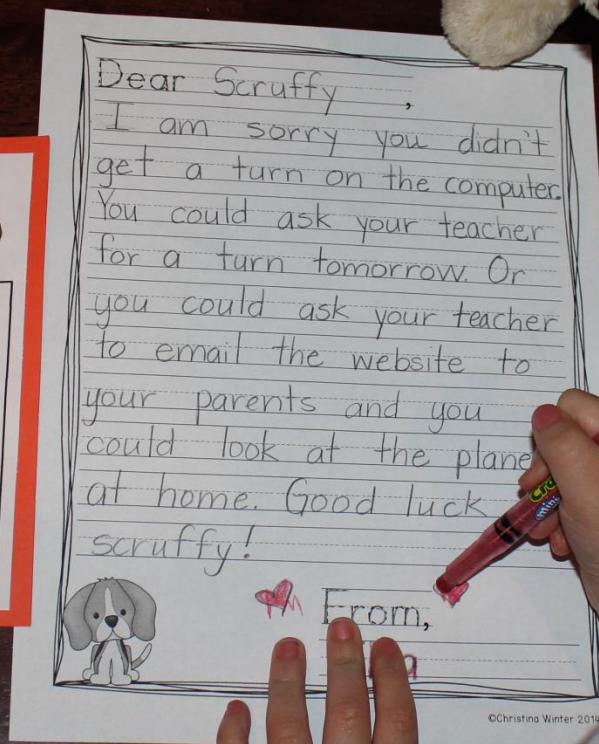 Dear Scruffy ,
I am sorry you didn't
get a turn on the computer.
You could ask your teacher
for a turn tomorrow. Or
you could ask your teacher
to email the website to
your parents and you
could look at the plane
at home. Good luck
scruffy!
From,
©Christina Winter 2014